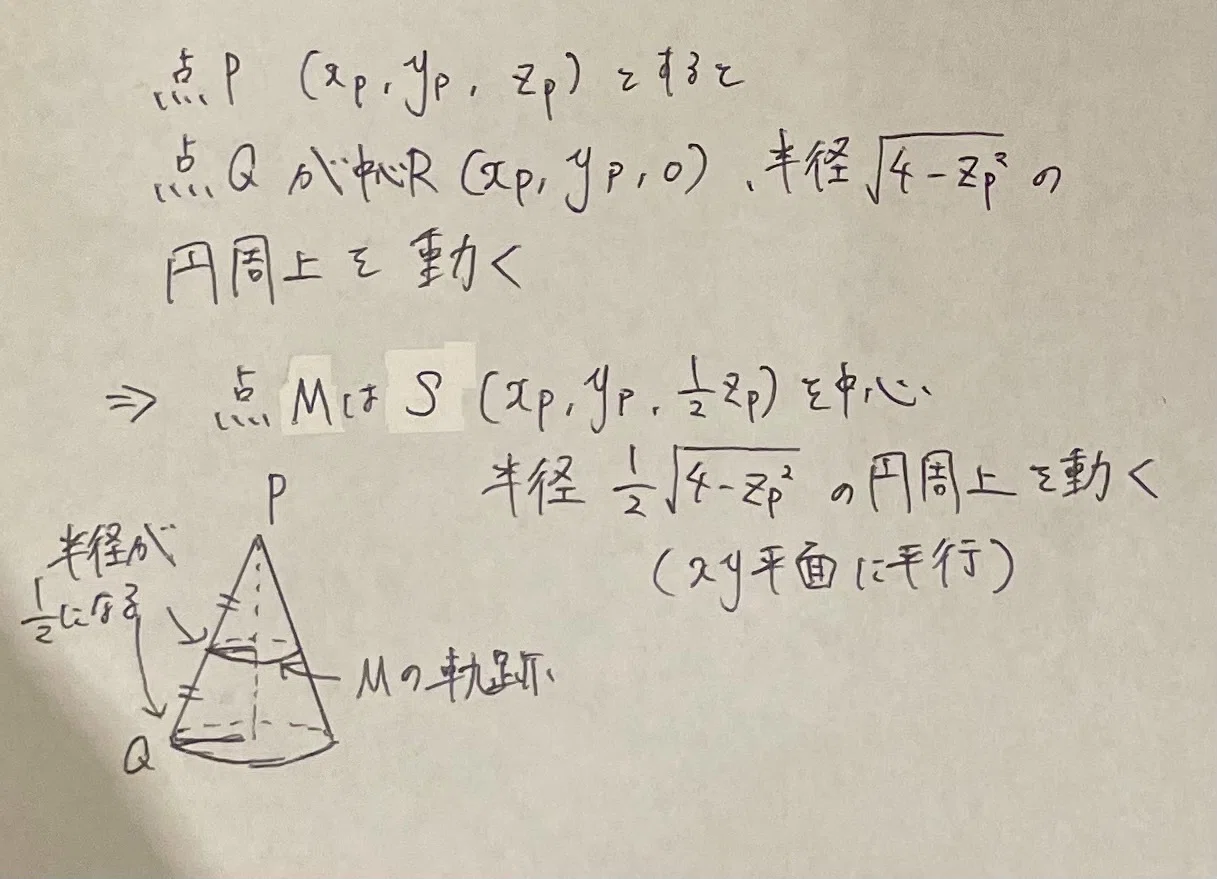 点P (xp, yp, zp) とすると
点Qが中心R (xp, yp, 0)、半径√(4-zp²) の
円周上を動く
⇒ 点MはS (xp, yp, 1/2 zp) を中心、
半径 1/2 √(4-zp²) の円周上を動く
(xy平面に平行)
P
半径が
1/2になる
Mの軌跡
Q